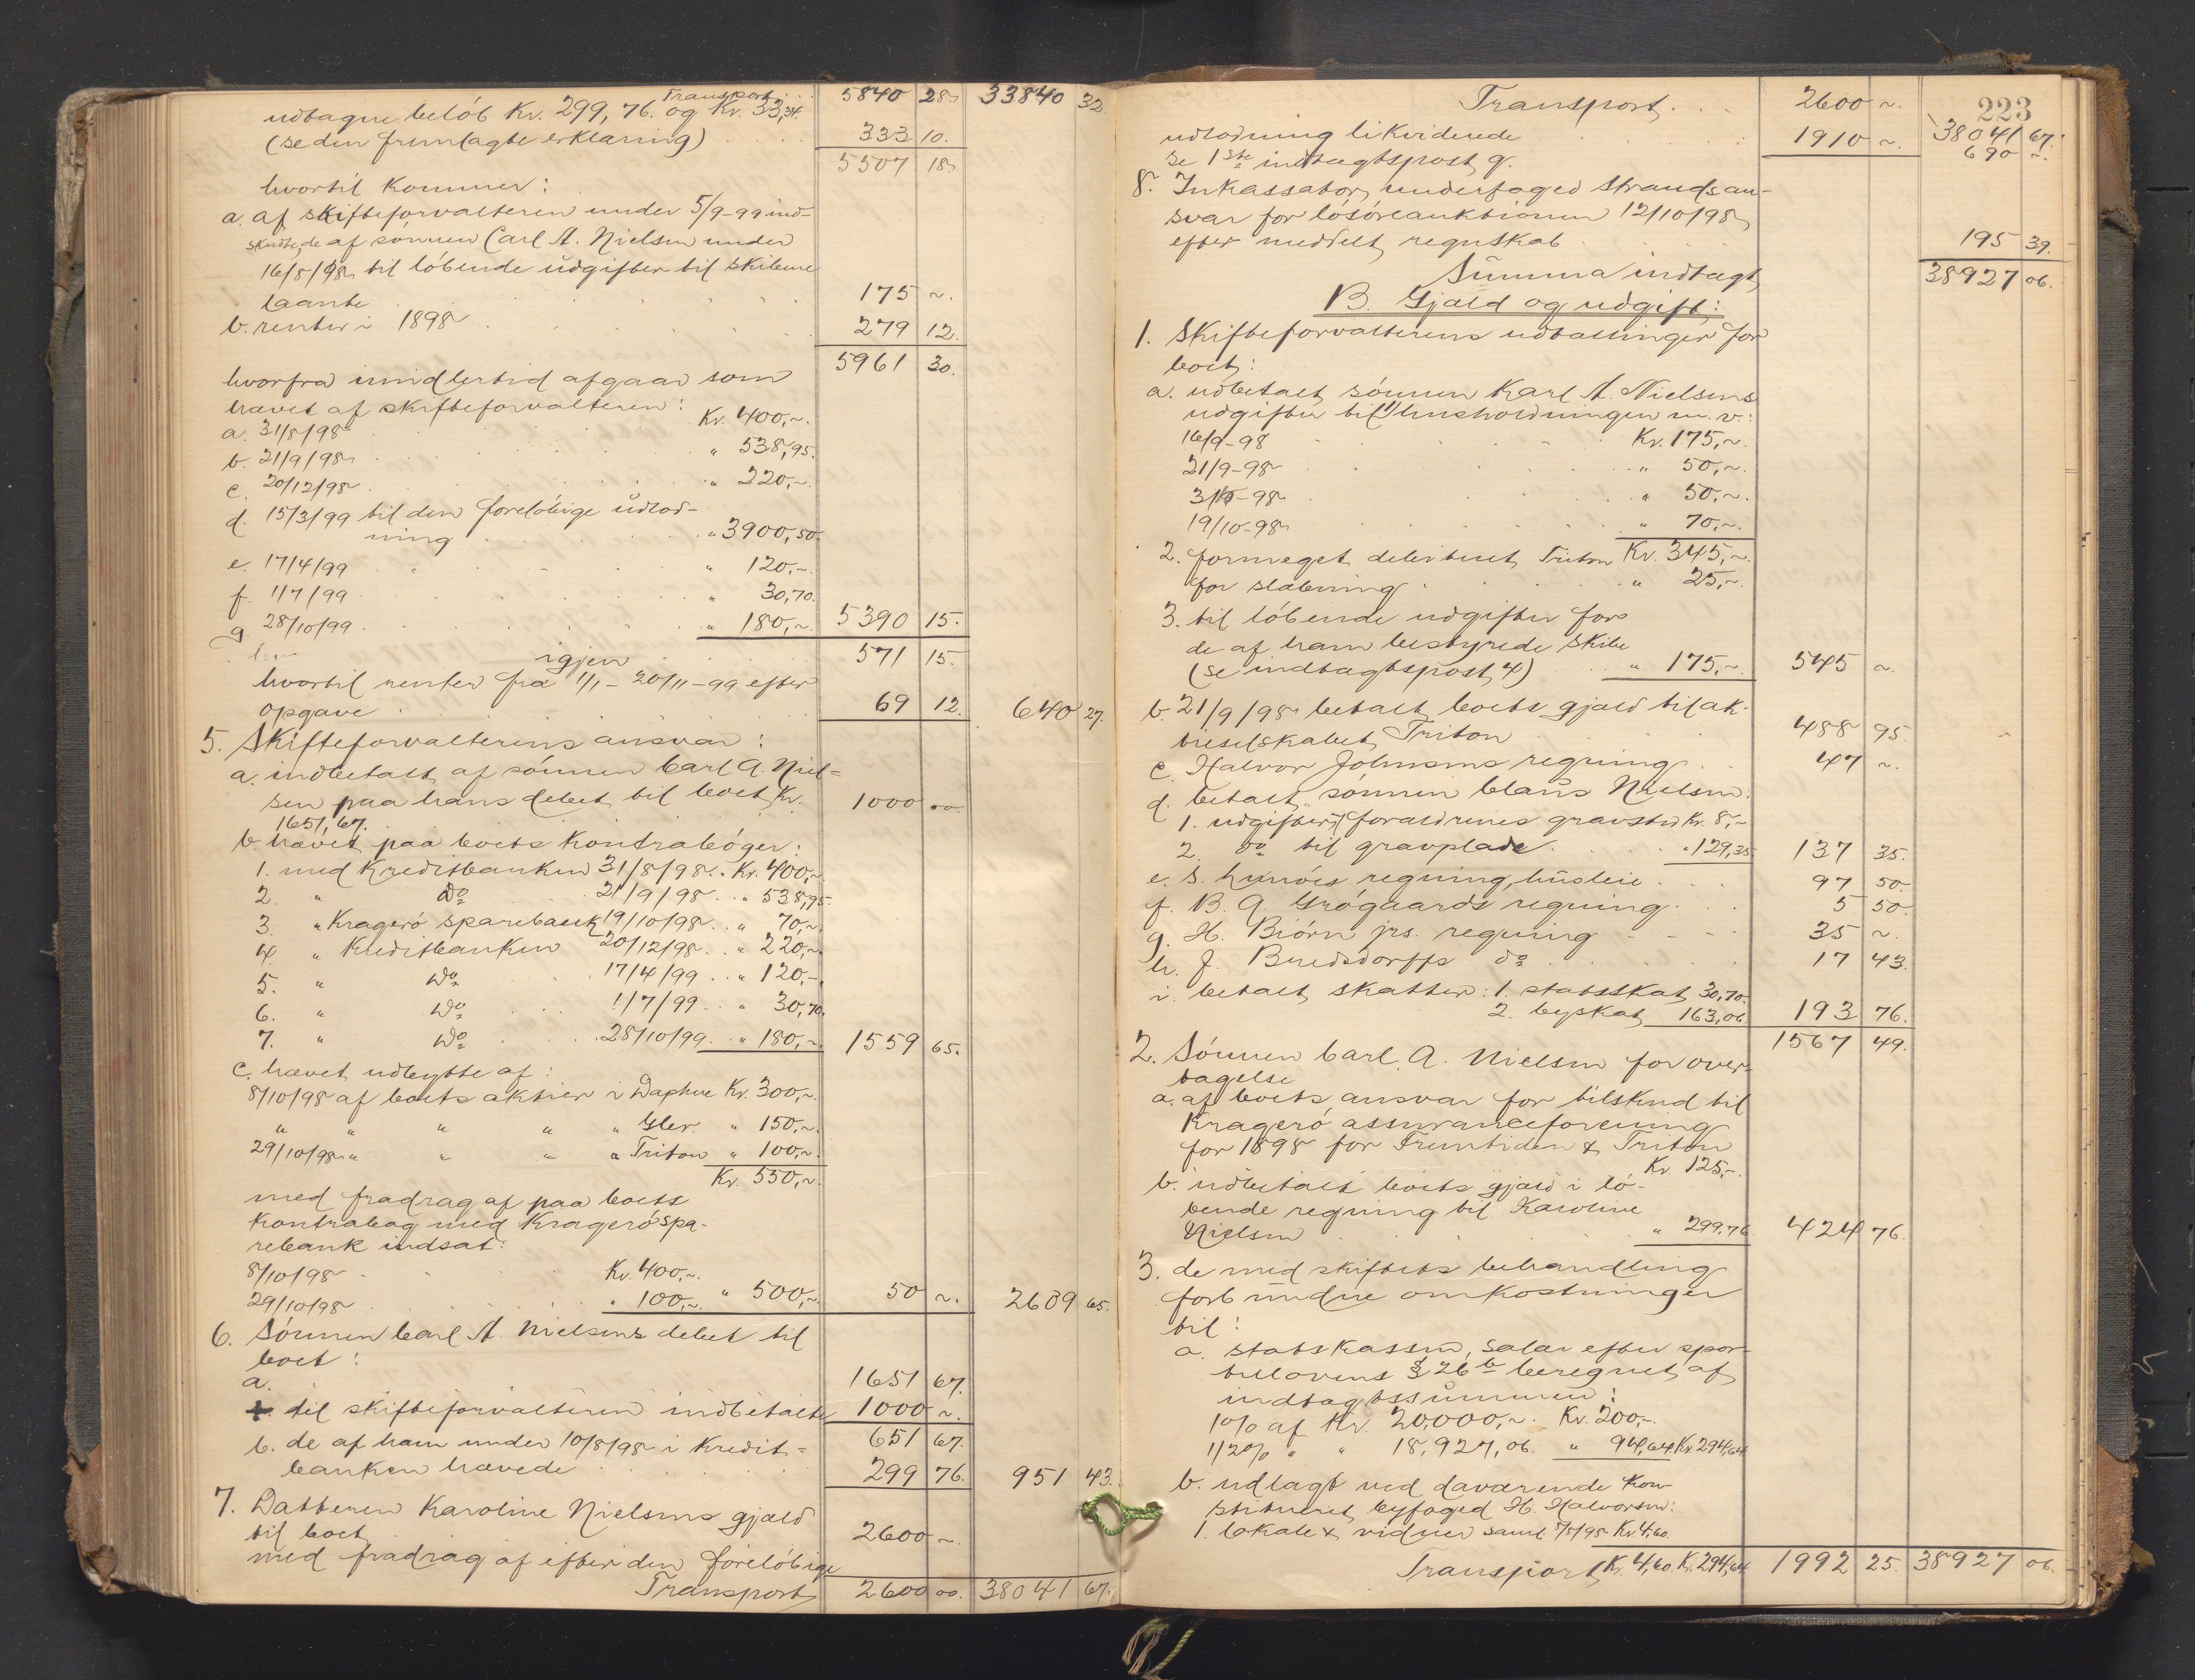 Transport . . . 5840 28. 33840 32
udtagne beløb Kr. 299,76. og Kr. 33,34.
(se den fremlagte erklæring) . . . 333 10.
5507 18.
hvortil kommer:
a. af skifteforvalteren under 5/9-99 ind-
skudte, de af sønnen Carl A. Nielsen under
16/8/98 til løbende udgifter til skibene
laante . . . 175 ~.
b. renter i 1898 . . . 279 12.
5961 30.
hvorfra imidlertid afgaar som
hævet af skifteforvalteren:
a. 31/8/98 . . . Kr. 400,~.
b. 21/9/98 . . . " 538,95.
c. 20/12/98 . . . " 220,~.
d. 15/3/99 til den foreløbige udlod-
ning . . . " 3900,50.
e. 17/4/99 . . . " 120,~.
f. 1/7/99 . . . " 30,70.
g. 28/10/99 . . . " 180,~. 5390 15.
igjen 571 15.
hvortil renter fra 1/1 - 20/11-99 efter
opgave . . . 69 12. 640 27.
5. Skifteforvalterens ansvar:
a. indbetalt af sønnen Carl A. Niel=
sen paa hans debet til boet Kr. 1000 oo.
1651,67.
b. hævet paa boets kontrabøger:
1. med Kreditbanken 31/8/98 . . Kr. 400,~.
2. " Do 21/9/98 . . " 538,95.
3. " Kragerø sparebank 19/10/98 . . " 70,~.
4. " Kreditbanken 20/12/98 . . " 220,~.
5. " Do 17/4/99 . . " 120,~.
6. " Do 1/7/99 . . " 30,70.
7. " Do 28/10/99 . . " 180,~. 1559 65.
c. hævet udbytte af:
8/10/98 af boets aktier i Daphne Kr. 300,~.
" " " " " Gler. " 150,~.
29/10/98 " " " " Triton " 100,~.
Kr. 550,~.
med fradrag af paa boets
kontrabog med Kragerø spa-
rebank indsat:
8/10/98 . . . Kr. 400,~.
29/10/98 . . . " 100,~. " 500,~. 50 ~. 2609 65.
6. Sønnen Carl A. Nielsens debet til
boet:
a. 1651 67.
÷ til skifteforvalteren indbetalte 1000 ~.
651 67.
b. de af ham under 10/8/98 i Kredit=
banken hævede . . . 299 76. 951 43.
7. Datteren Karoline Nielsens gjæld
til boet 2600 ~.
med fradrag af efter den foreløbige
Transport 2600 oo. 38041 67.
223
Transport . . . 2600 ~. 38041 67.
udlodning likviderede . . . 1910 ~. 690 ~.
se 1ste indtægtspost g.
8. Inkassator, underfoged Strands an-
svar for løsøreauktionen 12/10/98
efter meddelt regnskab . . . 195 39.
Summa indtægt 38927 06.
B. Gjæld og udgift:
1. Skifteforvalterens udtællinger for
boet:
a. udbetalt sønnen Karl A. Nielsens
udgifter til 1) husholdningen m. v.:
16/9-98 . . . Kr. 175,~.
21/9-98 . . . " 50,~.
3/10-98 . . . " 50,~.
19/10-98 . . . " 70,~.
2. formeget debiteret Triton Kr. 345,~.
for slæbning . . . " 25,~.
3. til løbende udgifter for
de af ham bestyrede skibe
(se indtægtspost 4) . . . " 175,~. 545 ~.
b. 21/9/98 betalt boets gjæld til ak-
tieselskabet Triton . . . 488 95.
c. Halvor Johnsens regning . . 47 ~.
d. betalt sønnen Claus Nielsen:
1. udgifter t/ forældrenes gravsted Kr. 8,~
2. do til gravplade . . . " 129,35 137 35.
e. S. Lunöes regning, husleie . . . 97 50.
f. B. A. Grøgaards regning . . . 5 50.
g. H. Biørn jrs. regning - - - - 35 ~.
h. J. Bredsdorffs do . . . 17 43.
i. betalt skatter: 1. statsskat 30,70.
2. byskat 163,06 193 76.
1567 49.
2. Sønnen Carl A. Nielsen for over-
tagelse
a. af boets ansvar for tilskud til
Kragerø assuranceforening
for 1898 for Fremtiden & Triton
Kr. 125,~.
b. udbetalt boets gjæld i lø-
bende regning til Karoline
Nielsen . . . " 299,76. 424 76.
3. de med skiftets behandling
forbundne omkostninger
til:
a. statskassen, salær efter spor-
tellovens § 26 b beregnet af
indtægtssummen:
1% af Kr. 20,000,~. Kr. 200,~.
1/2% " " 18,927,06. " 94,64 Kr. 294,64
b. udlagt ved daværende kon-
stitueret byfoged H. Halvorsen:
1. lokale & vidner samt 5/8/98 Kr. 4,60.
Transport Kr. 4,60 Kr. 294,64 1992 25. 38927 06.